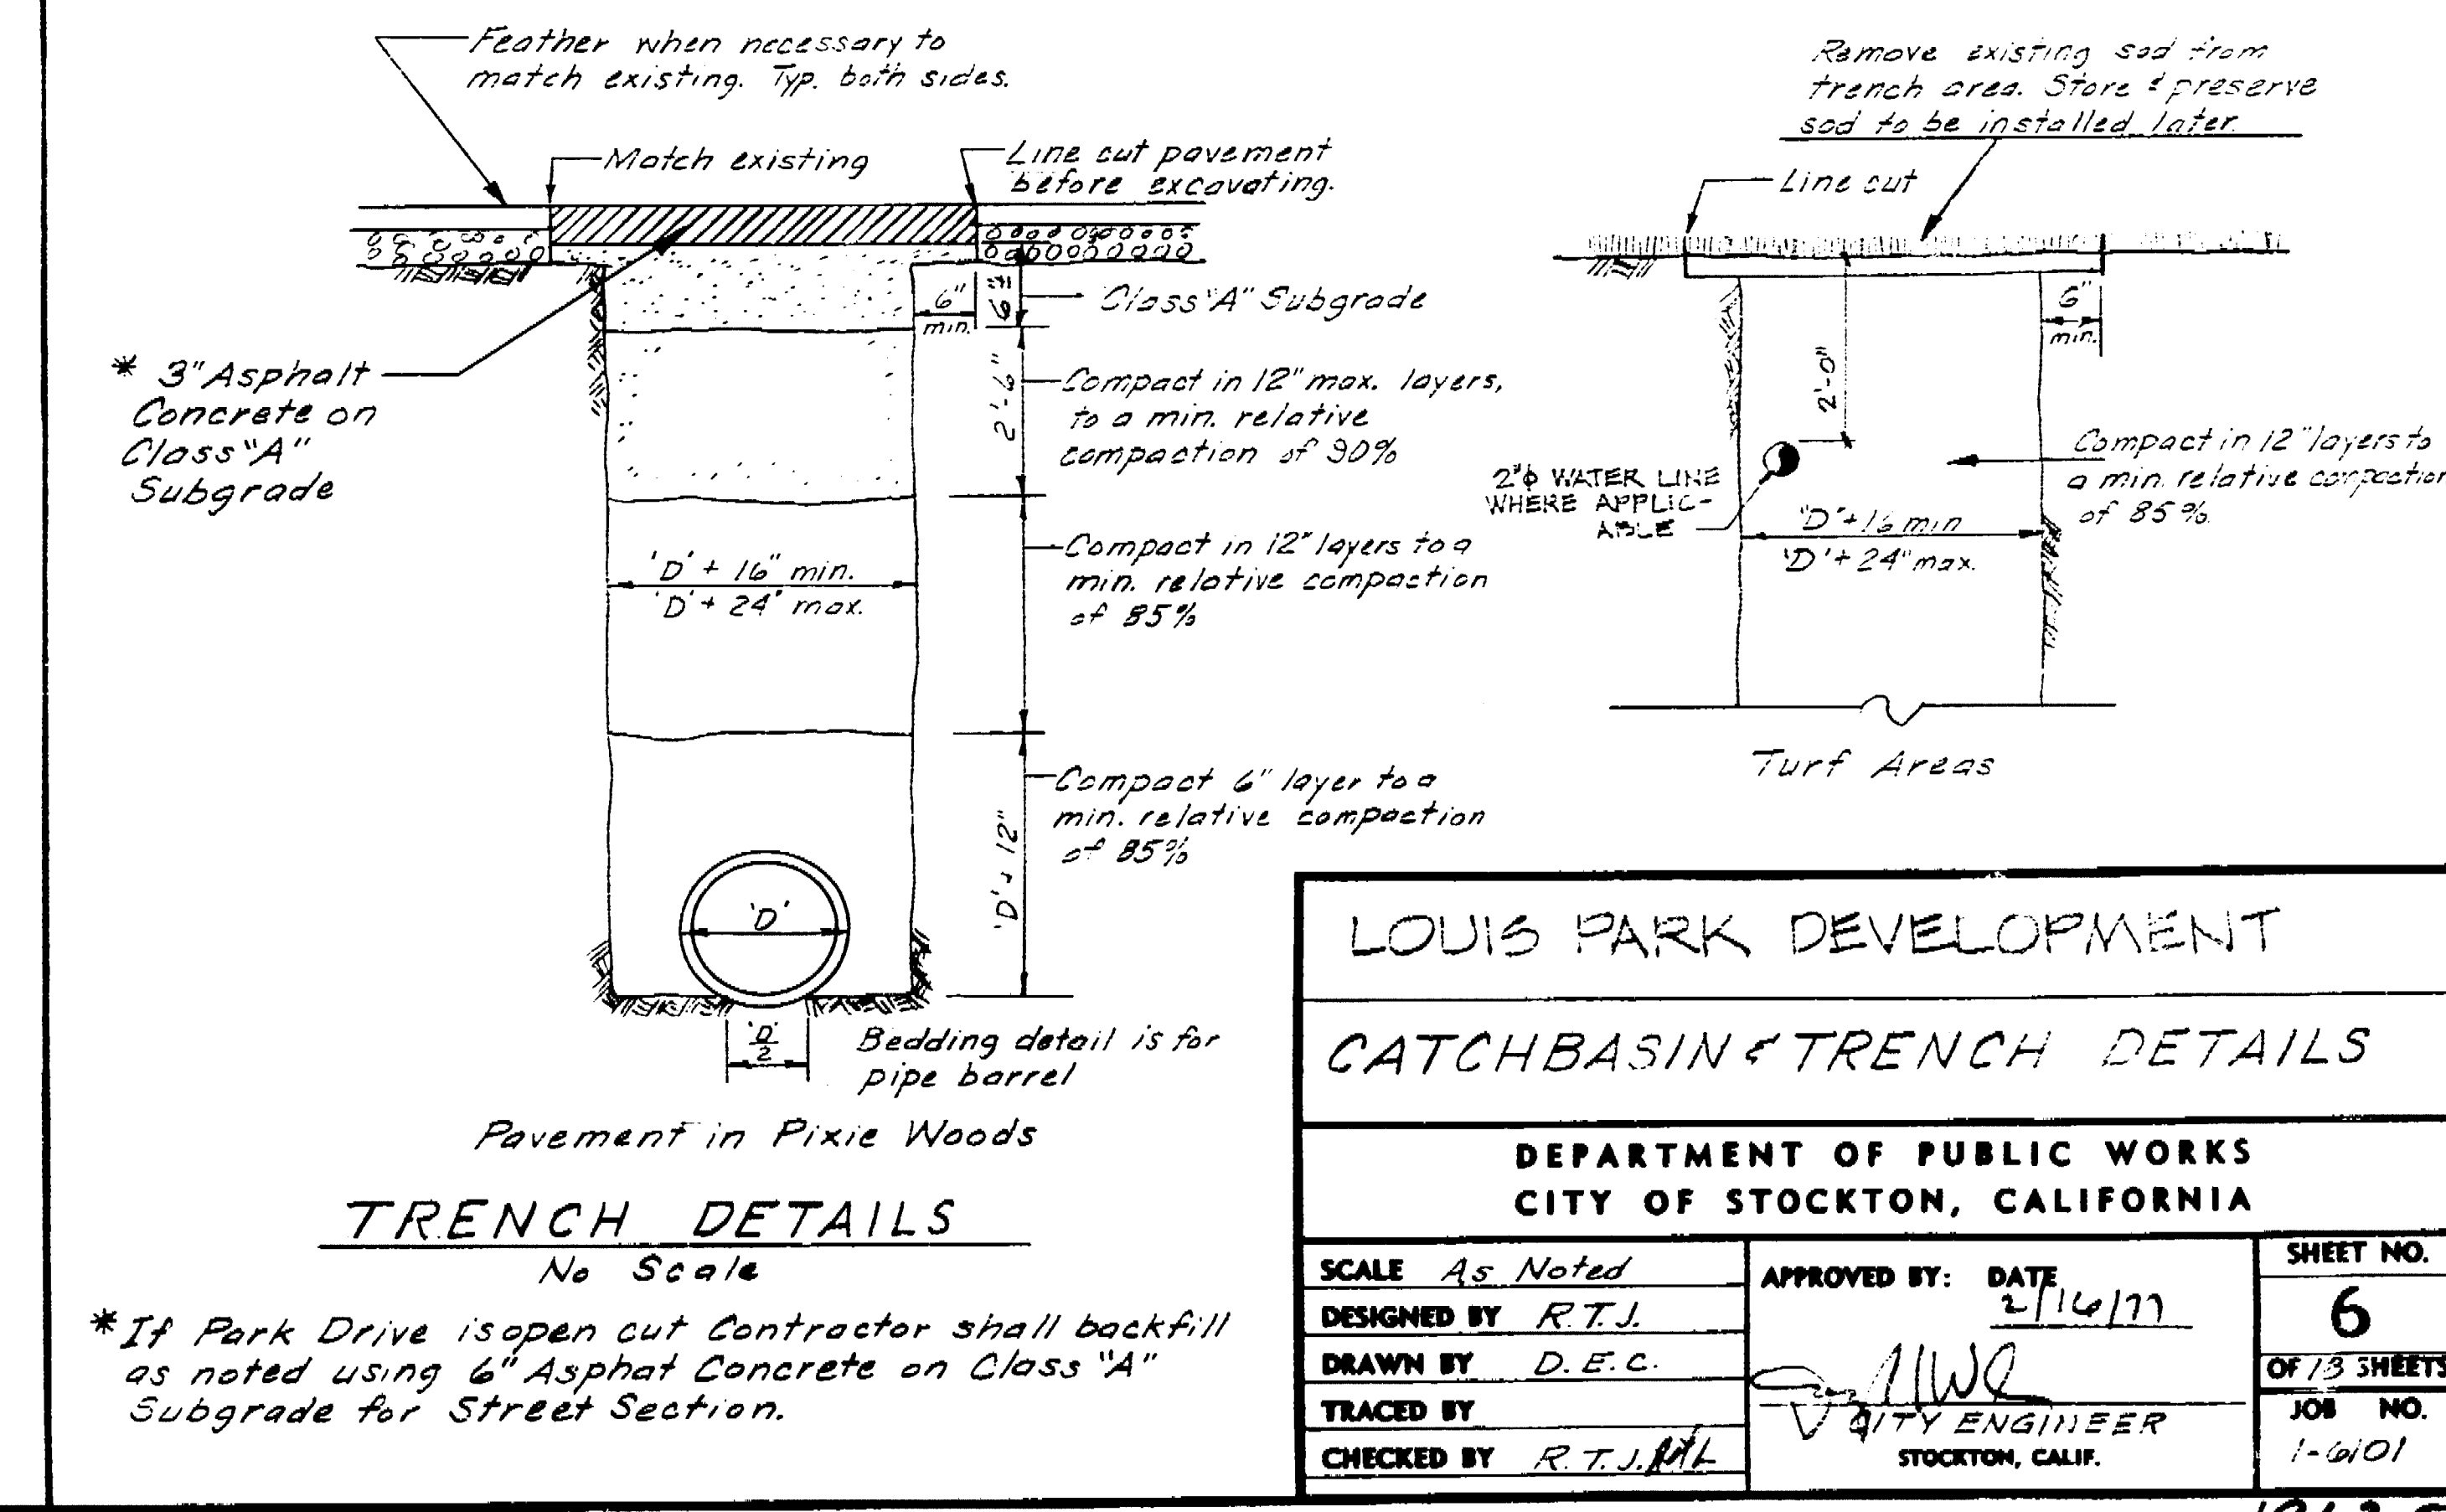 Feather when necessary to
match existing. Typ. both sides.
Match existing
Line cut pavement
before excavating.
6"
min.
6"±
Class "A" Subgrade
* 3" Asphalt
Concrete on
Class "A"
Subgrade
2'-6"
Compact in 12" max. layers,
to a min. relative
compaction of 90%
'D' + 16" min.
'D' + 24" max.
Compact in 12" layers to a
min. relative compaction
of 85%
'D' + 12"
Compact 6" layer to a
min. relative compaction
of 85%
'D'
'D'
2
Bedding detail is for
pipe barrel
Pavement in Pixie Woods
TRENCH DETAILS
No Scale
* If Park Drive is open cut Contractor shall backfill
as noted using 6" Asphat Concrete on Class "A"
Subgrade for Street Section.
Remove existing sod from
trench area. Store & preserve
sod to be installed later.
Line cut
6"
min.
2'-0"
2"φ WATER LINE
WHERE APPLIC-
ABLE
Compact in 12" layers to
a min. relative compaction
of 85%.
'D' + 16 min
'D' + 24" max.
Turf Areas
LOUIS PARK DEVELOPMENT
CATCHBASIN & TRENCH DETAILS
DEPARTMENT OF PUBLIC WORKS
CITY OF STOCKTON, CALIFORNIA
SCALE As Noted
DESIGNED BY R.T.J.
DRAWN BY D.E.C.
TRACED BY
CHECKED BY R.T.J.
APPROVED BY: DATE
2/16/77
CITY ENGINEER
STOCKTON, CALIF.
SHEET NO.
6
OF 13 SHEETS
JOB NO.
1-6101